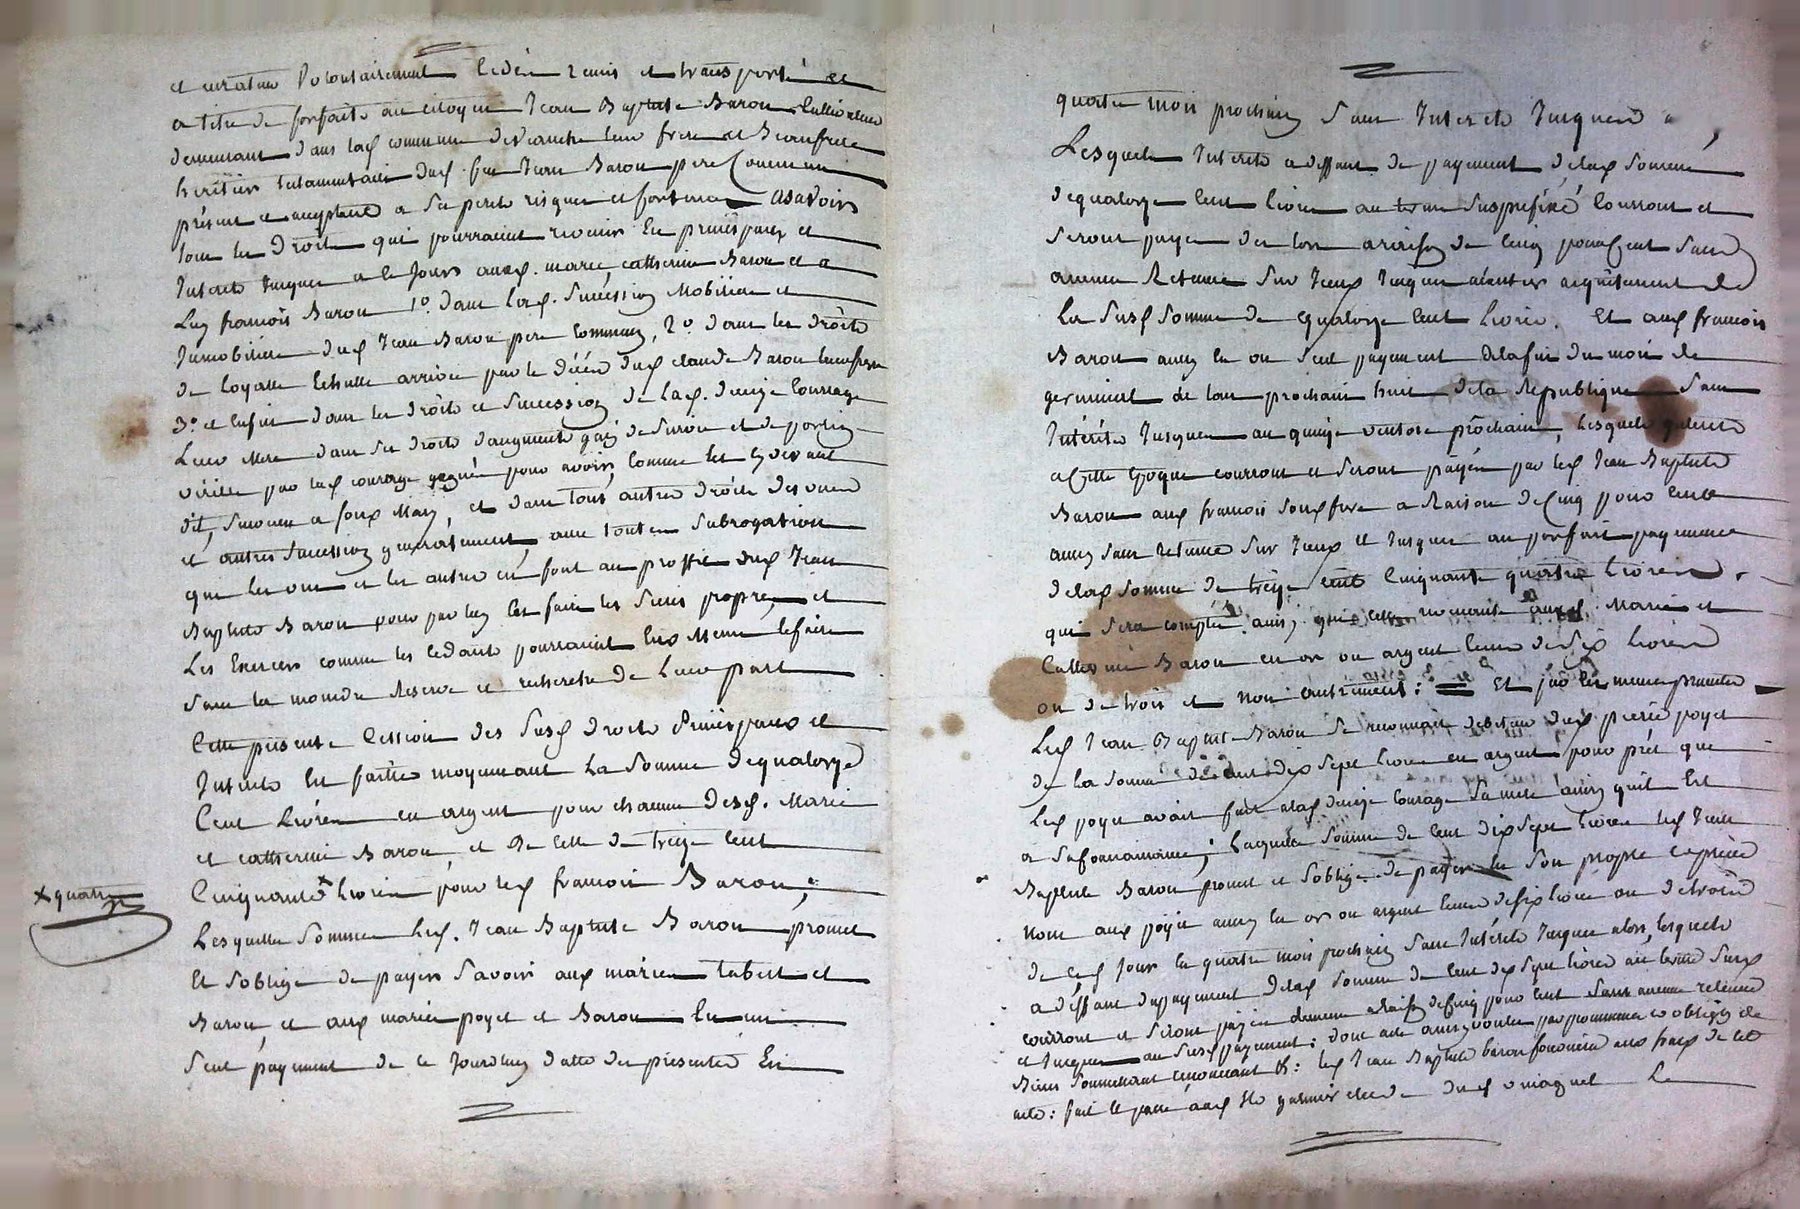 et curateur volontairement cedé remis et transporté et
a titre de forfaits au citoyen Jean Baptiste Baron cultivateur
demeurant dans lad commune leur frere et Beaufrere
heritier testamentaire dud. feu Jean Baron pere Commun
présent et acceptant a sa perte risques et fortunes asavoir
tous les Droits qui pourraient revenir En principaux et
Interets Jusques a ce Jours auxd. marie, catherine Baron et a
Led francois Baron 1º dans lad. succession Mobiliere et
Immobiliere dud Jean Baron pere commun, 2º dans les droits
de loyalle Echutte arrivée par le décés dud claude Baron leur frere
3º et enfin dans les droits et succession de lad. denize Courrage
Leur Mere dans ses droits d'augment gain de survie et de portion
virille par lad courrage gagné pour avoir, comme les cy devant
dit, survecu a son Mary, et dans tous autres droits
et autres succession generalement, avec toutes subrogation
que les uns et les autres en font au proffit dud Jean
Baptiste Baron pour par luy les faire les siens propres et
Les Exercer comme les cedants pourraient Eux Meme le faire
sans la moindre Reserve et recherche de Leur part
Cette présente Cession des susd droits Principaux et
Interets Est faitte moyennant La somme de quatorze
Cent Livres en argent pour chacune desd. Marie
et catherine Baron, et De Celle de treize Cent
Cinquante x Livres pour led francois Baron;
x quatre
Lesquelles sommes Led. Jean Baptiste Baron promet
Et soblige de payer savoir aux mariés tabert et
Baron et aux mariés poyet et Baron En un
seul payement de ce Jourdhuy datte des présentes En
quatre mois prochain sans Interets Jusques a ,
Lesquels Interets a deffaut de payement delad somme
de quatorze Cent Livres au terme susprefixé Courront et
seront payes des lors araison de cinq pour Cent sans
aucune Retenue sur Iceux Jusques aequitement de
La susd somme de quatorze Cent Livres. Et aud francois
Baron aussy En un seul payement Alafin du mois de
germinal de lan prochain huit dela Republique sans
Intérêts Jusques au quinze ventose prochain, Lesquels Interets
a Cette Epoque courront et seront payés par led Jean Baptiste
Baron aud francois son frere a Raison de Cinq pour Cent
aussy sans retenue sur Iceux et Jusques au parfait payement
delad somme de treize cent Cinquante quatre Livres.
qui sera compté ainsy que celle revenante auxd. Marie et
Catherine Baron en or ou argent Ecus de six Livres
ou de trois et Non autrement: = Et par les meme presentes
Led Jean Baptiste Baron se reconnait debiteur dud pierre poyet
de La somme de cent dix sept Livres en argent pour prét que
Led poyet avait fait alad denize Courage sa mere ainsy quil Est
a sa Connaissance; Laquelle somme de Cent dix sept Livres led Jean
Baptiste Baron promet et soblige de payer En son propre et privé
Nom aud poyet aussy En or ou argent Ecus de six Livres ou de trois
de ced Jour En quatre mois prochain sans Intérêts Jusques alors, lesquels
a déffaut de payement delad somme de Cent dix sept Livres au terme susd
courront et seront payés de meme araison de Cinq pour Cent sans aucune retenue
et Jusques au susd payement; dont acte ainsy voulu par promesses et obligés de
Biens soumettant renoncant &: led Jean Baptiste baron fournira aux frais de cet
acte: fait et passé aud